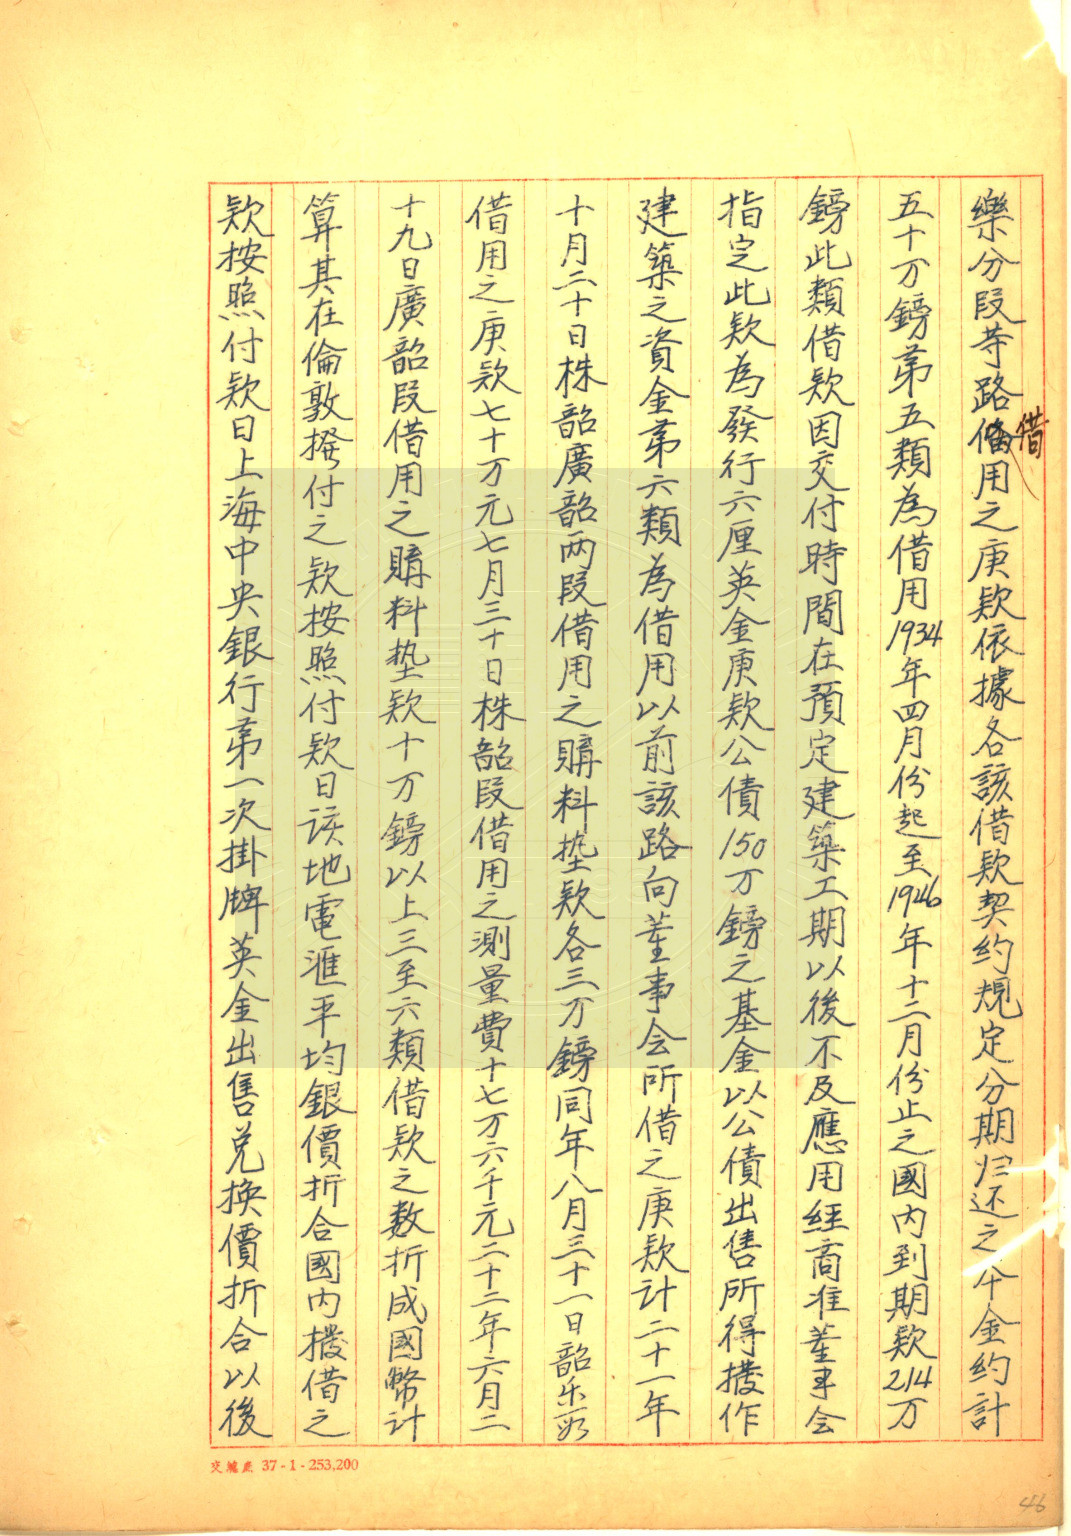 樂分段等路借用之庚款依據各該借款契約規定分期归还之本金約計
借
五十万鎊第五類為借用1934年四月份起至1946年十二月份止之國内到期款214万
鎊此類借款因交付時間在預定建築工期以後不及應用經商准董事会
指定此款為發行六厘英金庚款公債150万鎊之基金以公債出售所得撥作
建築之資金第六類為借用以前該路向董事会所借之庚款計二十一年
十月二十日株韶廣韶两段借用之購料垫款各三万鎊同年八月三十一日韶乐段
借用之庚款七十万元七月三十日株韶段借用之測量費十七万六千元二十二年六月二
十九日廣韶段借用之購料垫款十万鎊以上三至六類借款之数折成國幣計
算其在倫敦撥付之款按照付款日该地電滙平均銀價折合國内撥借之
款按照付款日上海中央銀行第一次掛牌英金出售兑换價折合以後
37-1-253,200
46